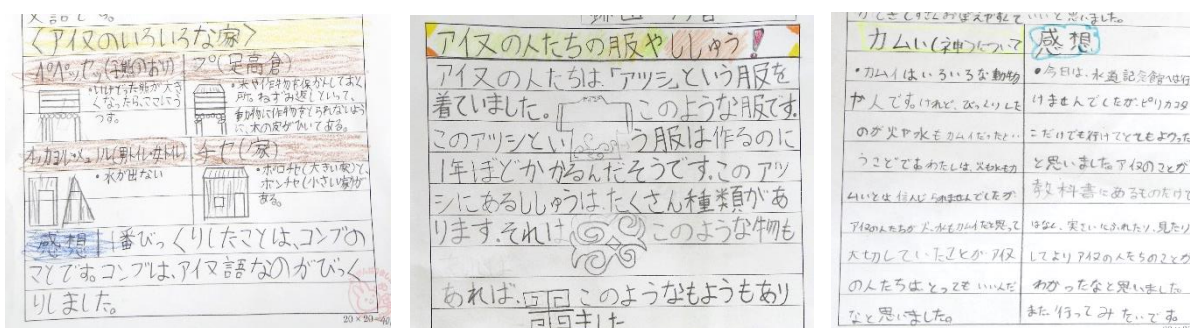 〈アイヌのいろいろな家〉
プ(足高倉)
・いけどった熊が大き
くなったら、ここにうつ
す。
オッカヨル・メノコル(男トイレ・女トイレ)
・水が出ない
チセ(家)
・ポロチセ(大きい家)と、
ポンチセ(小さい家)が
ある。
感想
1番びっくりしたことは、コンブの
ことです。コンブは、アイヌ語なのがびっく
りしました。
20×20=40
アイヌの人たちの服やししゅう!
アイヌの人たちは、「アツシ」という服を
着ていました。このような服です。
このアツシという服は作るのに
1年ほどかかるんだそうです。このアツ
シにあるししゅうは、たくさん種類があ
ります。それは このような物も
あれば、このようなもようもあり
ました
カムい(神)について
・カムイはいろいろな動物
や人です。けれど、びっくりした
のが火や水もカムイだったとい
うことです。わたしは、火も水もカ
ムいとは信じられませんでしたが、
アイヌの人たちが火、水もカムイだと思って
大切していたことがアイヌ
の人たちはとってもいいんだ
なと思いました。
感想
・今日は、水道記念館へは行
けませんでしたが、ピリカコタ
ンだけでも行けてとてもよかった
と思いました。アイヌのことが
教科書にあるものだけで
はなく、実さいにふれたり、見たり
してよりアイヌの人たちのことが
わかったなと思いました。
また行ってみたいです。